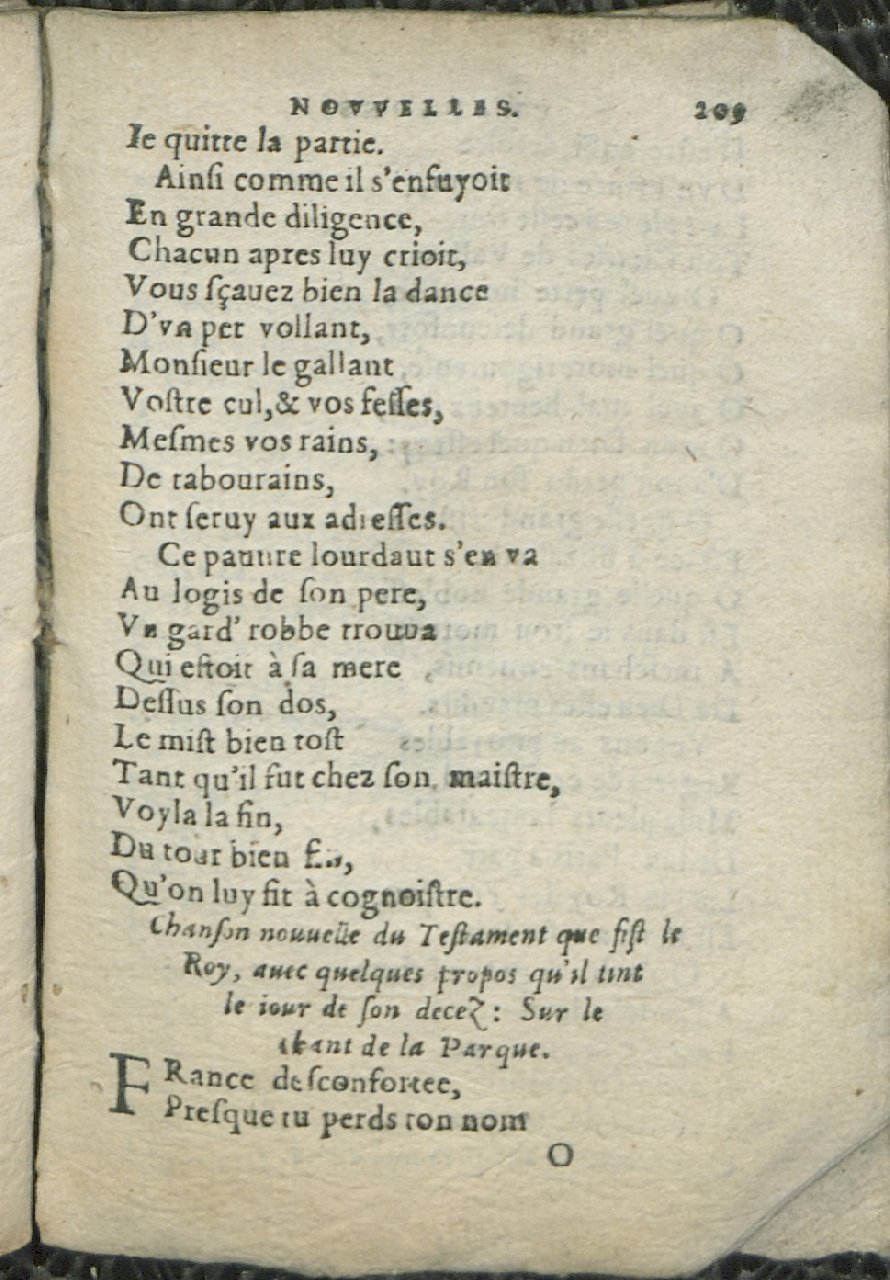 NOVVELLES. 209
Ie quitte la partie.
Ainſi comme il s'enfuyoit
En grande diligence,
Chacun apres luy crioit,
Vous ſçauez bien la dance
D'vn pet vollant,
Monſieur le gallant
Voſtre cul,& vos feſſes,
Meſmes vos rains,
De tabourains,
Ont ſeruy aux adreſſes.
Ce pauure lourdaut s'en va
Au logis de ſon pere,
Vn gard' robbe trouua
Qui eſtoit à ſa mere
Deſſus ſon dos,
Le miſt bien toſt
Tant qu'il fut chez ſon maiſtre,
Voyla la fin,
Du tour bien fin,
Qu'on luy fit à cognoiſtre.
Chanſon nouuelle du Teſtament que fiſt le
Roy, auec quelques propos qu'il tint
le iour de ſon decez : Sur le
chant de la Parque.
FRance deſconfortee,
Preſque tu perds ton nom
O